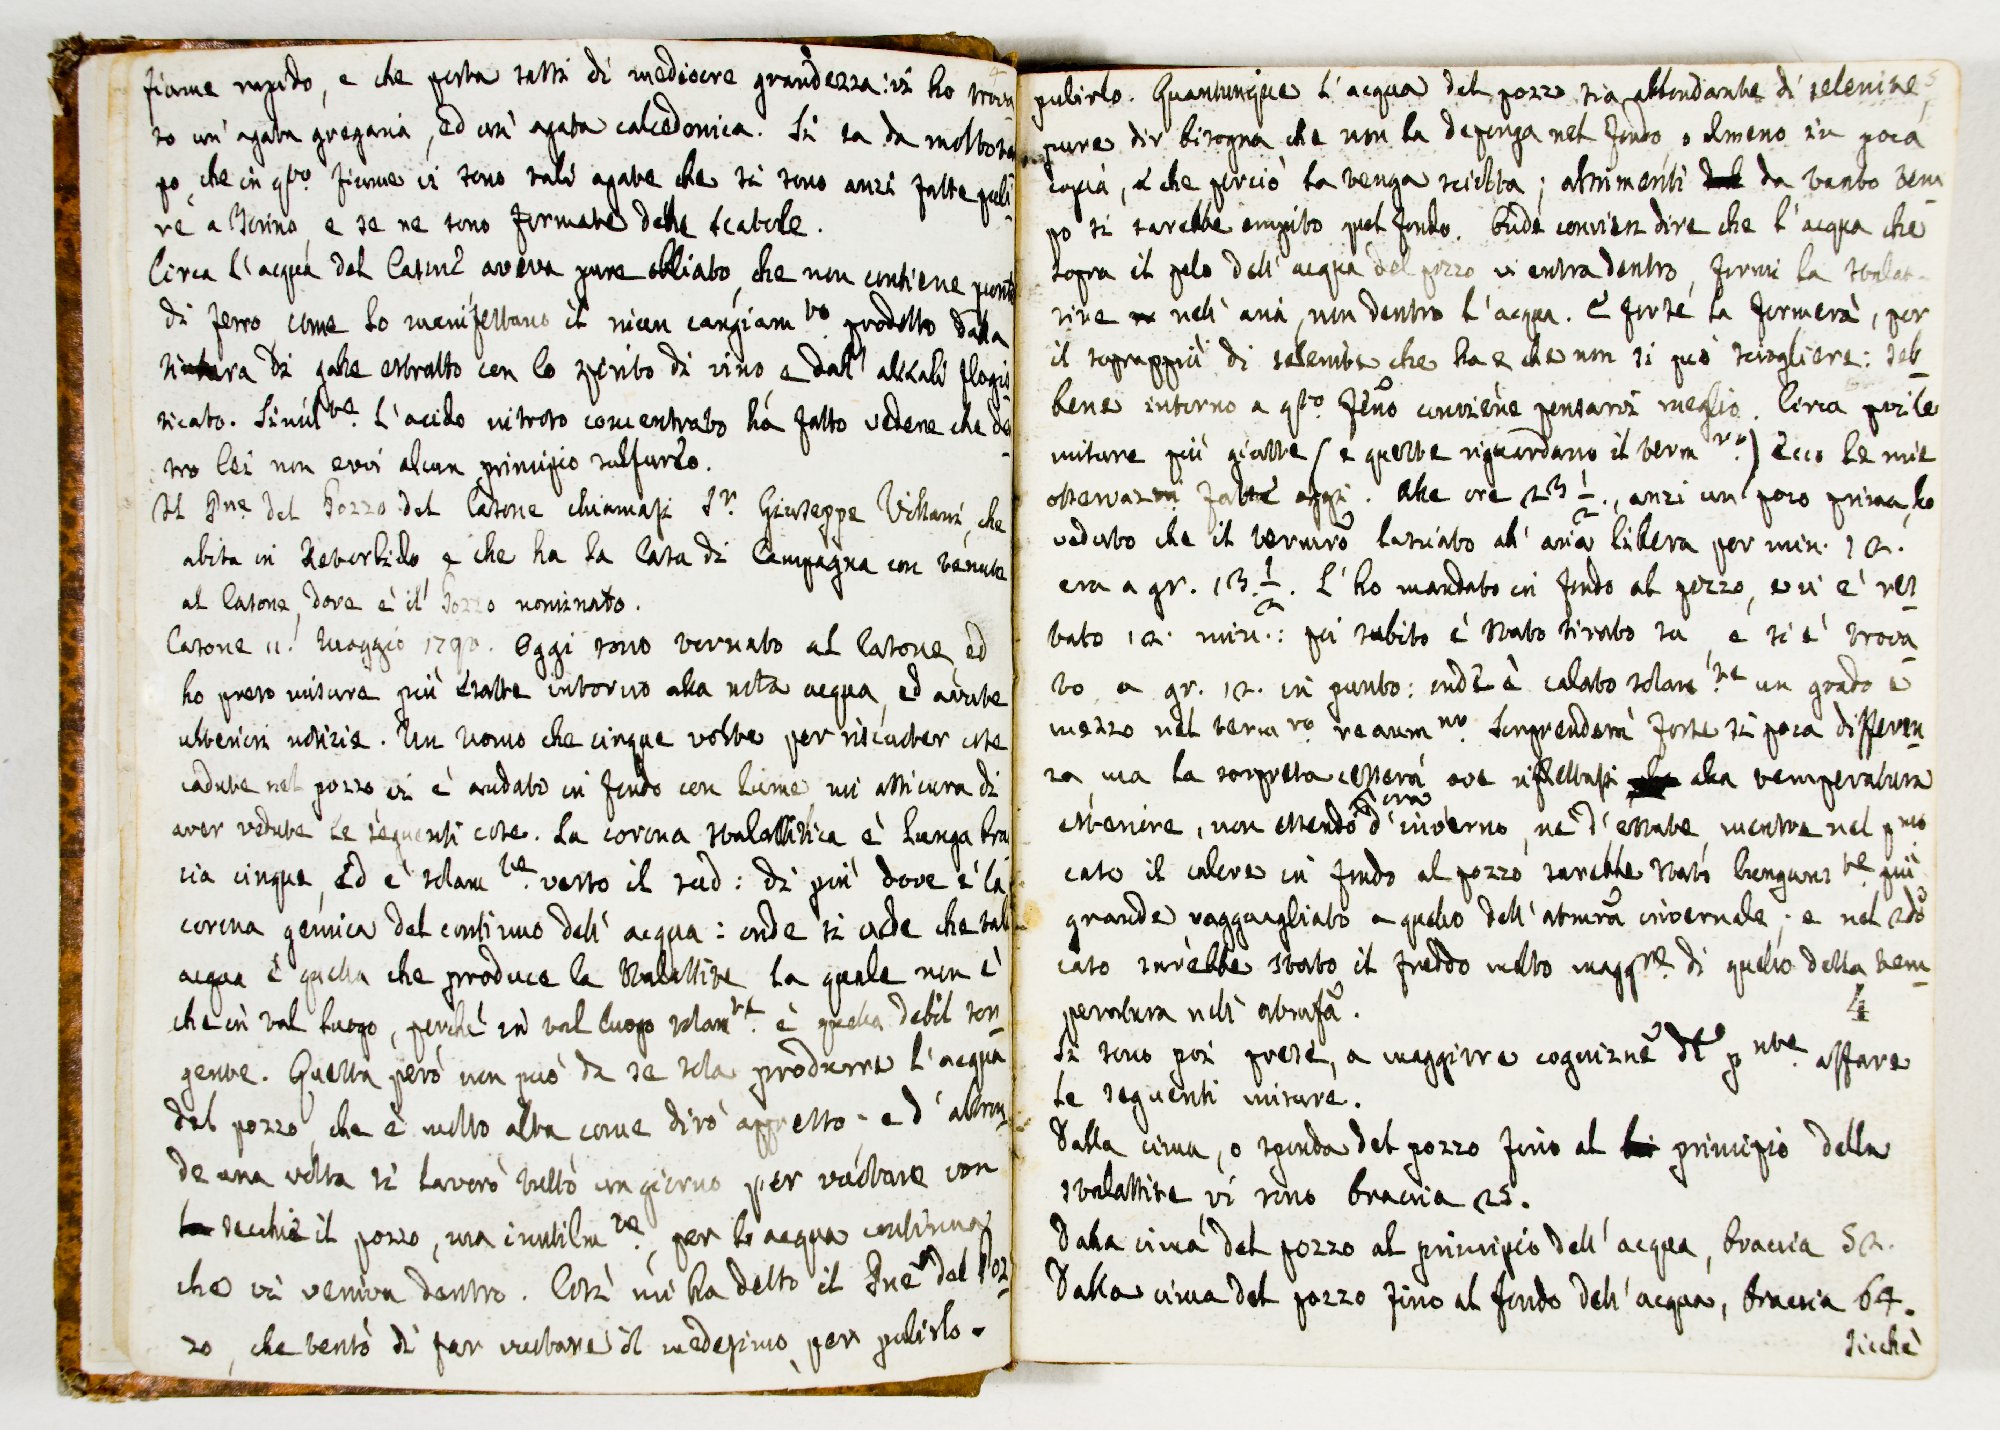 fiume rapido, e che porta sassi di mediocre grandezza: vi ho trova-
to un'agata gregaria, ed un'agata calcedonica. Si sa da molto tem-
po, che in qto. fiume vi sono tali agate che si sono anzi fatte puli-
re a Torino, e se ne sono formate delle scatole.
Circa l'acqua del Casone aveva pure obliato, che non contiene punto
di ferro come lo manifestano il niun cangiamto prodotto dalla
tintura di galle estratto con lo spirito di vino e dall'alkali flogis-
ticato. Similte. l'acido nitroso concentrato ha fatto vedere che den-
tro lei non evvi alcun principio sulfureo.
Il Pne. del Pozzo del Casone chiamasi Sr. Giuseppe Villani, che
abita in Retorbido e che ha la Casa di Campagna con tenute
al Casone, dove è il Pozzo nominato.
Casone 11. Maggio 1790. Oggi sono tornato al Casone, ed
ho preso misure più esatte intorno alla nota acqua, ed avute
ulteriori notizie. Un Uomo che cinque volte per riscuoter cose
cadute nel pozzo vi è andato in fondo con lume mi assicura di
aver vedute le seguenti cose. La corona stalattitica è lunga brac-
cia cinque, ed è solamte. verso il sud: di più dove è la
corona gemica del continuo dell'acqua: onde si vede che tal
acqua è quella che produce la stalattite la quale non è
che in tal luogo, perché in tal luogo solamte. è quella debil sor-
gente. Questa però non può da se sola produrre l'acqua
del pozzo, che è molto alta come dirò appresso - e d'altron-
de una volta si lavorò tutto un giorno per vuotare con
le secchie il pozzo, ma inutilmte., per la acqua continua
che vi veniva dentro. Così mi ha detto il Pne del Poz-
zo, che tentò di far vuotare il medesimo per pulirlo.
pulirlo. Quantunque l'acqua del pozzo sia abbondante di selenite,
pure dir bisogna che non la deponga nel fondo, o almeno in poca
copia, e che perciò la tenga sciolta; altrimenti da tanto tem-
po si sarebbe empito quel fondo. Onde convien dire che l'acqua che
sopra il pelo dell'acqua del pozzo vi entra dentro, formi la stalat-
tite nell'aria, non dentro l'acqua. E forse la formerà, per
il soprappiù di selenite che ha e che non si può sciogliere: seb-
bene intorno a qto. Feno conviene pensarvi meglio. Circa poi le
misure più giuste (e queste riguardano il termro.) Ecco le mie
osservazni fatte oggi. Alle ore 23 1/2., anzi un poco prima, ho
veduto che il termrõ lasciato all'aria libera per min. 12.
era a gr. 13. 1/2. L'ho mandato in fondo al pozzo, e vi è res-
tato 12. min.: poi subito è stato tirato su, e si è trova-
to a gr. 12. in punto: onde è calato solamte un grado e
mezzo nel termro reaumno. Sorprenderà forse sì poca differen-
za, ma la sorpresa cesserà ove riflettasi alla temperatura
esteriore, non essendo ora d'inverno, né d'estate, mentre nel pmo
caso il calore in fondo al pozzo sarebbe stato lungamte più
grande ragguagliato a quello dell'atmfra invernale; e nel 2do
caso sarebbe stato il freddo molto maggre. di quello della tem-
peratura nell'atmfa.
4
Si sono poi prese, a maggiore cognizne del pnte. affare
le seguenti misure.
Dalla cima, o sponda del pozzo fino al principio della
stalattite vi sono braccia 25.
Dalla cima del pozzo al principio dell'acqua, braccia 52.
Dalla cima del pozzo fino al fondo dell'acqua, braccia 64.
sicché